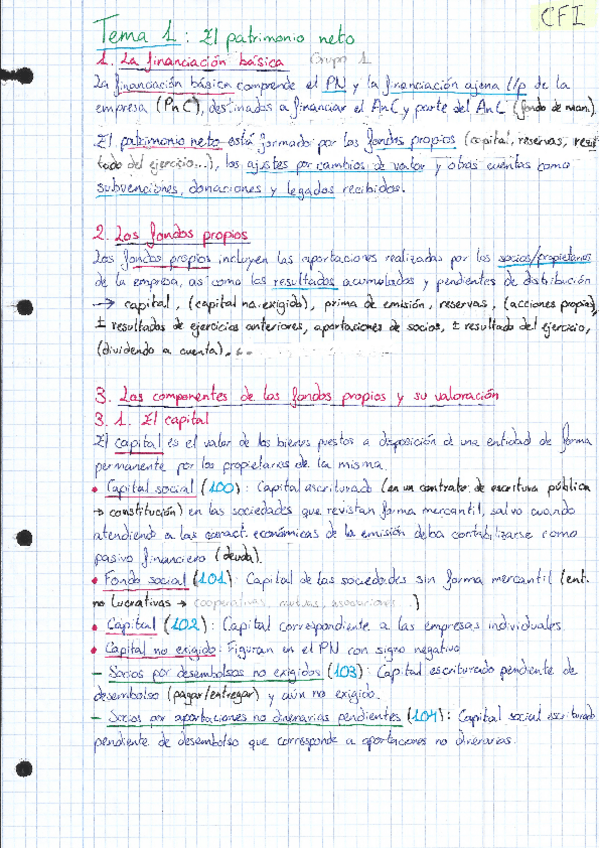 CFI
Tema 1: El patrimonio neto
1. La financiación básica Grupo 1
La financiación básica comprende el PN y la financiación ajena l/p de la
empresa (PnC), destinados a financiar el AnC y parte del AC (fondo de man.).
El patrimonio neto está formado por los fondos propios (capital, reservas, resul
tado del ejercicio...), los ajustes por cambios de valor y otras cuentas como
subvenciones, donaciones y legados recibidos.
2. Los fondos propios
Los fondos propios incluyen las aportaciones realizadas por los socios/propietarios
de la empresa, así como los resultados acumulados y pendientes de distribución
→ capital, (capital no exigido), prima de emisión, reservas, (acciones propias),
± resultados de ejercicios anteriores, aportaciones de socios, ± resultado del ejercicio,
(dividendo a cuenta).
3. Los componentes de los fondos propios y su valoración
3.1. El capital
El capital es el valor de los bienes puestos a disposición d una entidad de forma
permanente por los propietarios de la misma.
• Capital social (100): Capital escriturado (en un contrato de escritura pública
→ constitución) en las sociedades que revistan forma mercantil, salvo cuando
atendiendo a las caract. económicas de la emisión deba contabilizarse como
pasivo financiero (deuda).
• Fondo social (101): Capital de las sociedades sin forma mercantil (ent.
no lucrativas → cooperativas, mutuas, asociaciones...)
• Capital (102): Capital correspondiente a las empresas individuales
• Capital no exigido: Figuran en el PN con signo negativo
- Socios por desembolsos no exigidos (103): Capital escriturado pendiente de
desembolso (pagar/entregar) y aún no exigido.
- Socios por aportaciones no dinerarias pendientes (104): Capital social escriturado
pendiente de desembolso que corresponde a aportaciones no dinerarias.